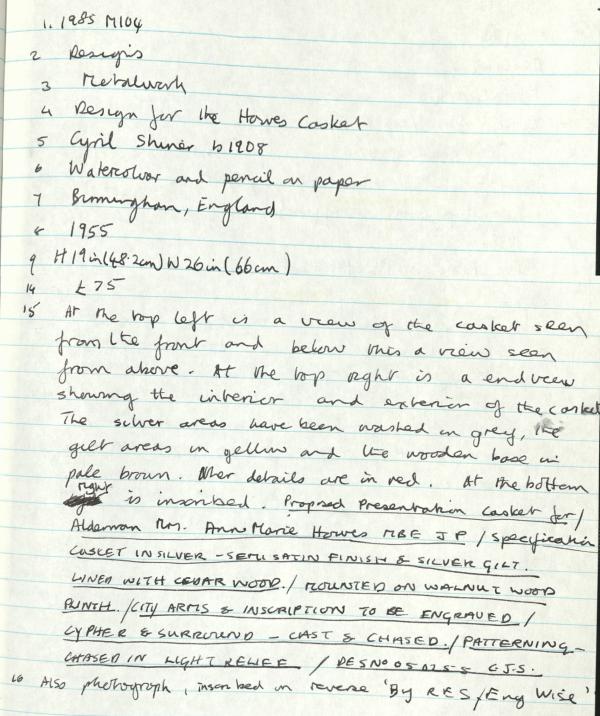 1. 1985 M104
2 Designs
3 Metalwork
4 Design for the Howes Casket
5 Cyril Shiner b 1908
6 Watercolour and pencil on paper
7 Birmingham, England
8 1955
9 H 19in (48.2cm) W 26in (66cm)
14 £75
15 At the top left is a view of the casket seen
from the front and below this a view seen
from above. At the top right is a end view
showing the interior and exterior of the casket
The silver areas have been washed in grey, the
gilt areas in yellow and the wooden base in
pale brown. Other details are in red. At the bottom
right is inscribed. Proposed Presentation Casket for/
Alderman Mrs. Ann Marie Howes MBE JP / Specification
CASKET IN SILVER - SEMI SATIN FINISH & SILVER GILT.
LINED WITH CEDAR WOOD. / MOUNTED ON WALNUT WOOD
PLINTH. / CITY ARMS & INSCRIPTION TO BE ENGRAVED /
CYPHER & SURROUND - CAST & CHASED. / PATTERNING -
CHASED IN LIGHT RELIEF / DES No 050255 C.J.S.
16 Also photograph, inscribed on reverse 'By RES / Eng Wise'